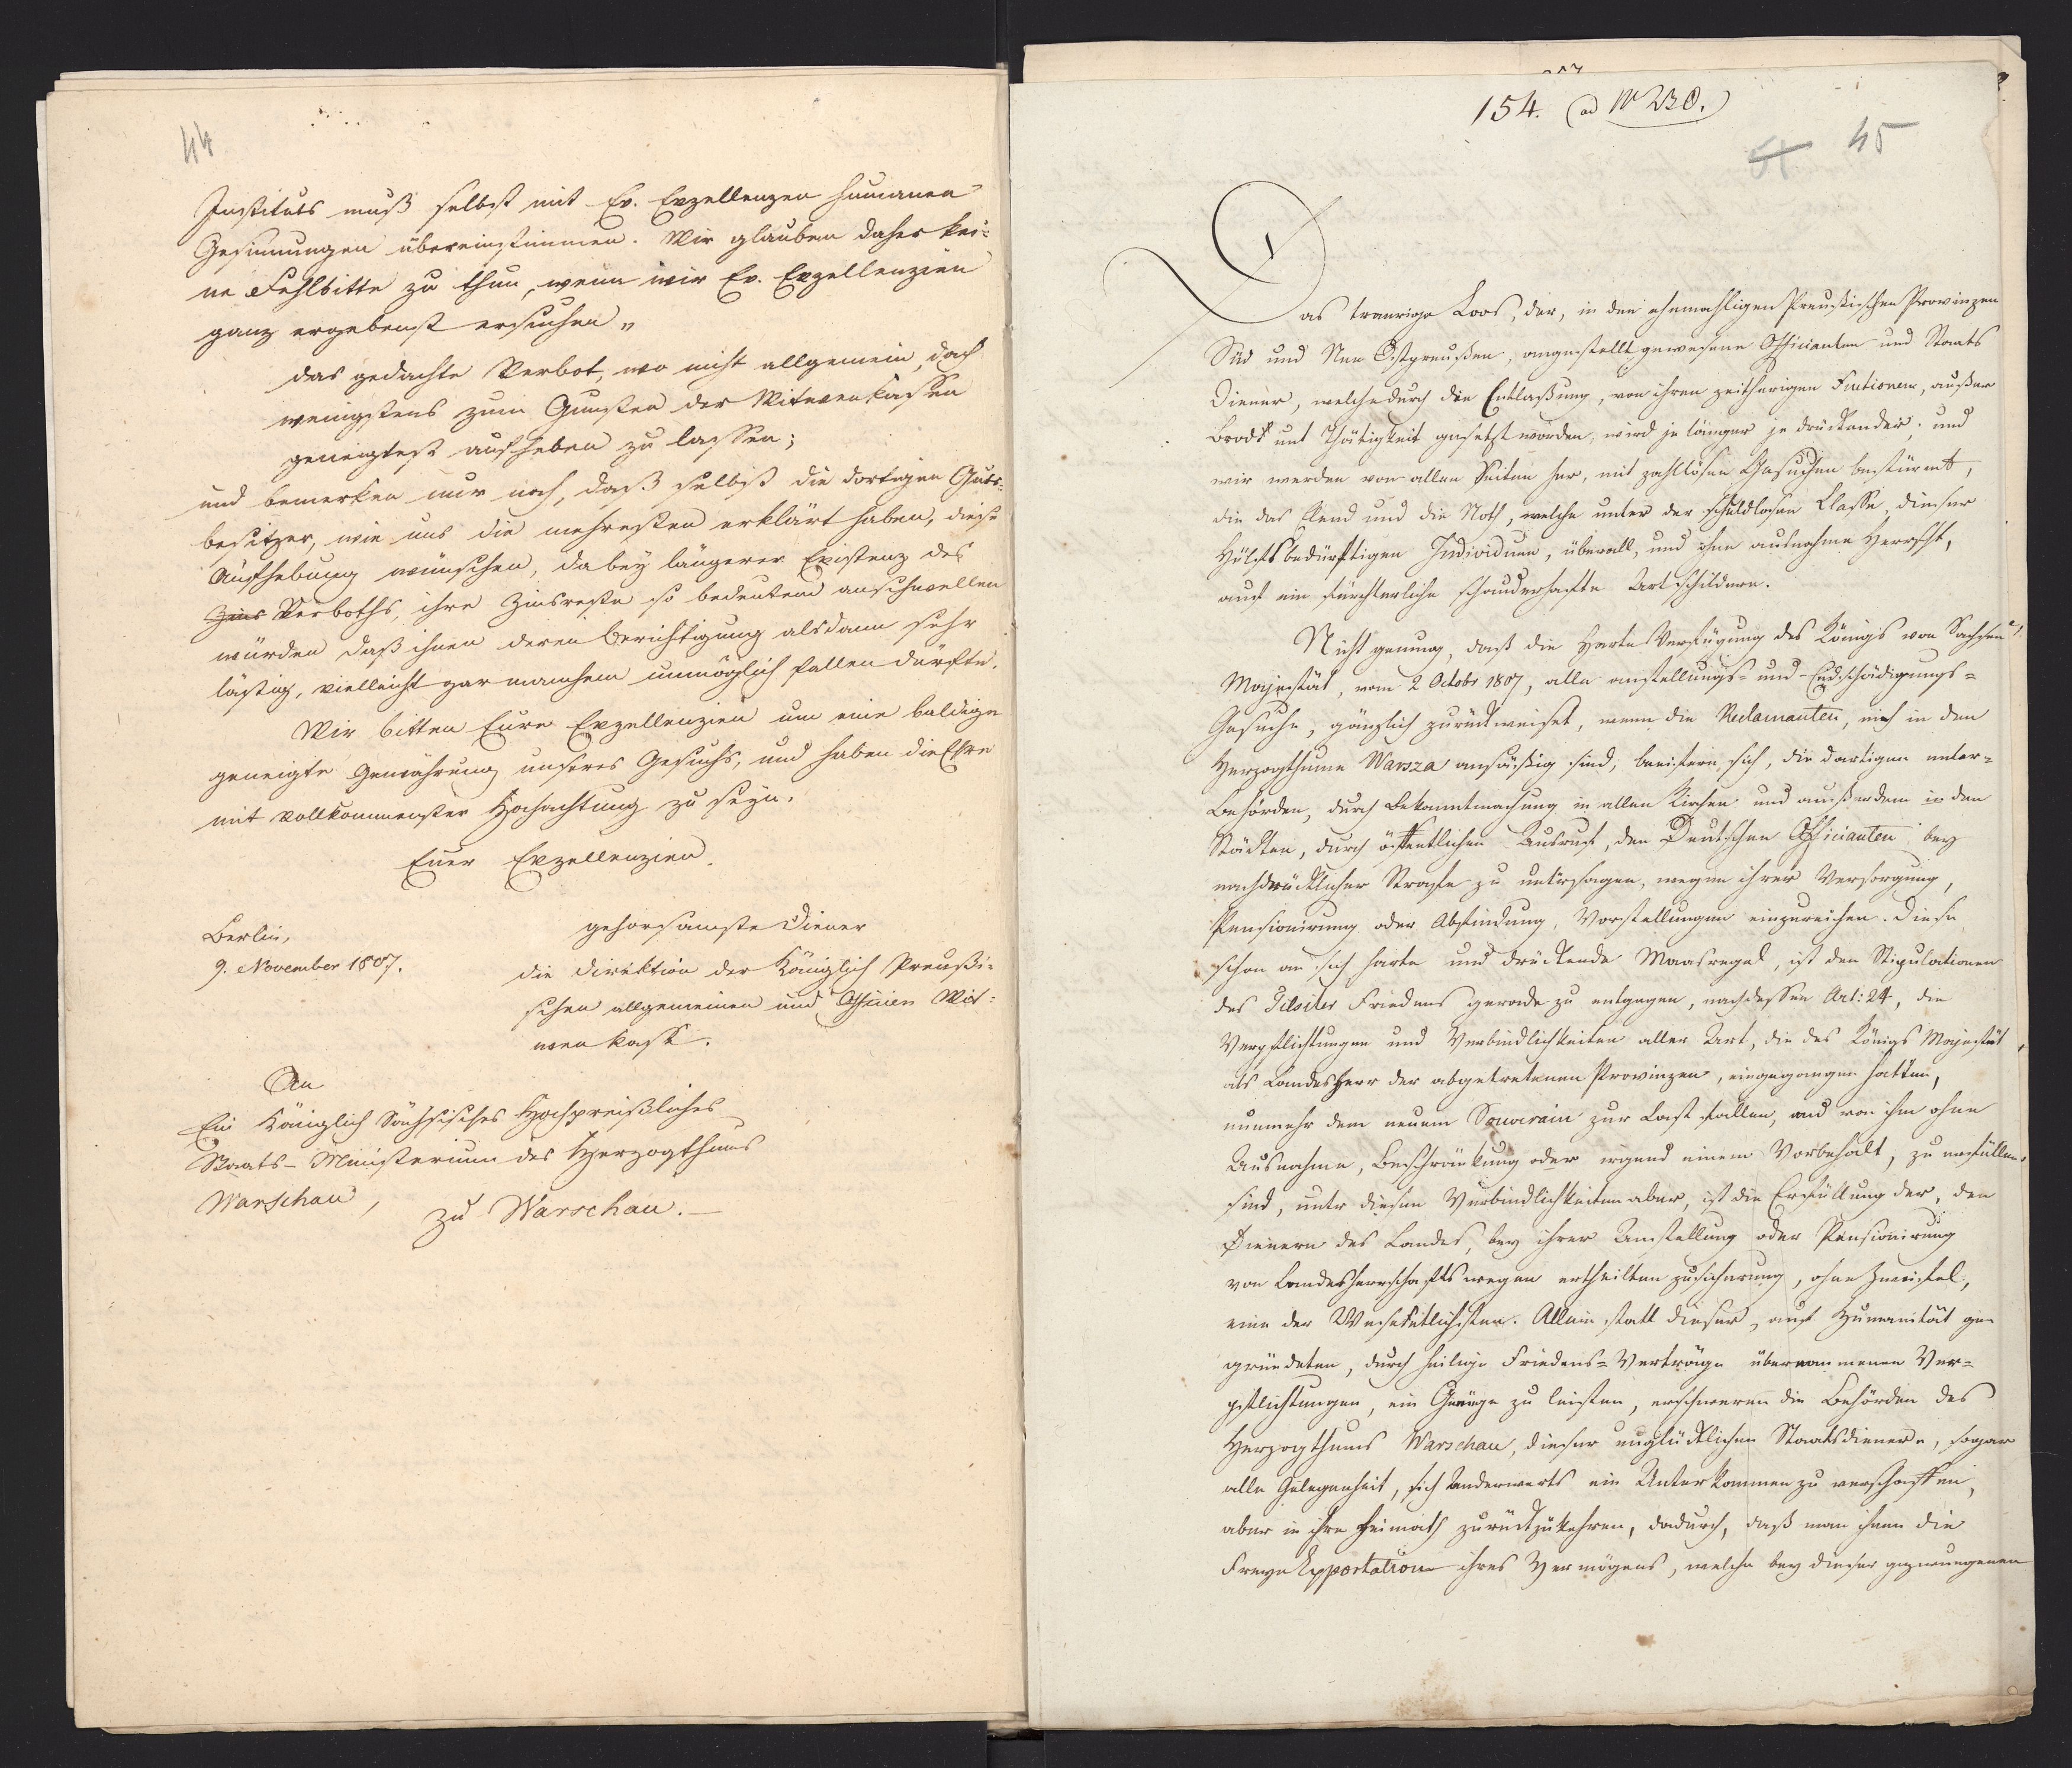 44
Instituts muß selbst mit Ew. Exzellenzen humanen
Gesinnungen übereinstimmen. Wir glauben daher kei-
ne Fehlbitte zu thun, wenn wir Ew. Exzellenzien
ganz ergebenst ersuchen,,
das gedachte Verbot, wo nicht allgemein, doch
wenigstens zum Gunsten der Witwenkassen
geneigtest aufheben zu lassen;
und bemerken nur noch, daß selbst die dortigen Guts-
besitzer, wie uns die mehresten erklärt haben, diese
Aufhebung wünschen, da bey längerer Existenz des
Zins Verboths, ihre Zinsreste so bedeutend anschwellen
würden daß ihnen deren Berichtigung alsdann sehr
lästig, vielleicht gar manchem unmöglich fallen dürfte.
Wir bitten Eure Exzellenzien um eine baldige
geneigte Gewährung unseres Gesuchs, und haben die Ehre
mit vollkommenster Hochachtung zu seyn.
Euer Exzellenzien.
Berlin,
9. November 1807.
gehorsamste Diener
die Direktion der Königlich Preußi-
schen allgemeinen und Officier Wit-
wen Kasse.
An
Ein Königlich Sächsisches Hochpreißliches
Staats-Ministerium des Herzogthums
Warschau,
zu Warschau.
154. (ad Nr 230.)
45
Das traurige Loos, der, in den ehemahligen Preußischen Provinzen
Süd und Neu Ostpreußen, angestellt gewesene Officianten und Staats
Diener, welche durch die Entlaßung, von ihren zeitherigen Functionen, außer
Brodt unt Thätigkeit gesetzt worden, wird je länger je drückender; und
wir werden von allen Seiten her, mit zahllosen Gesuchen bestürmt,
die das Elend und die Noth, welche unter der schuldlosen Classe dieser
Hülfsbedürftigen Individuen, überall, und ohne ausnahme Herrscht,
auf eine fürchterliche schauderhafte Art schildern.
Nicht genung, daß die Harte Verfügung des Königs von Sachsen
Majestät, vom 2 Octobr 1807, alle anstellungs- und Endschädigungs-
Gesuche, gänzlich zurückweiset, wenn die Reclamanten, nich in dem
Herzogthume Warsza ansäßig sind, beeifern sich, die dortigen unter-
Behörden, durch Bekanntmachung in allen Kirchen und außerdem in den
Städten, durch öffentlichen Ausruf, den Deutschen Officianten bey
nachdrücklicher Strafe zu untersagen, wegen ihrer Versorgung,
Pensionirung oder Abfindung, Vorstellungen einzureichen. Diese
schon an sich harte und drückende Maasregel, ist den Stipulationen
des Tilsiter Friedens gerade zu entgegen, nach dessen Art: 24, die
Verpflichtungen und Verbindlichkeiten aller Art, die des Königs Majestät
als Landesherr der abgetretenen Provinzen, eingegangen hatten,
nunmehr dem neuen Souverain zur Last fallen, und von ihm ohne
Ausnahme, Beschränkung oder irgend einem Vorbehalt, zu erfüllen
sind, unter diesen Verbindlichkeiten aber, ist die Erfüllung der, den
Dienern des Landes, bey ihrer Anstellung oder Pensionirung
von Landesherrschafts wegen ertheilten zusicherung, ohne Zweifel,
eine der Wesentlichsten. Allein statt dieser, auf Humanität ge-
gründeten, durch heilige Friedens-Verträge übernommenen Ver-
pflichtungen, ein Genüge zu leisten, erschweren die Behörden des
Herzogthums Warschau, dieser unglücklichen Staatsdienern, sogar
alle Gelegenheit, sich anderwerts ein Unterkommen zu verschaffen,
aber in ihre Heimath zurückzukehren, dadurch, daß man ihnen die
Freye Exportation ihres Vermögens, welche bey dieser gezwungenen